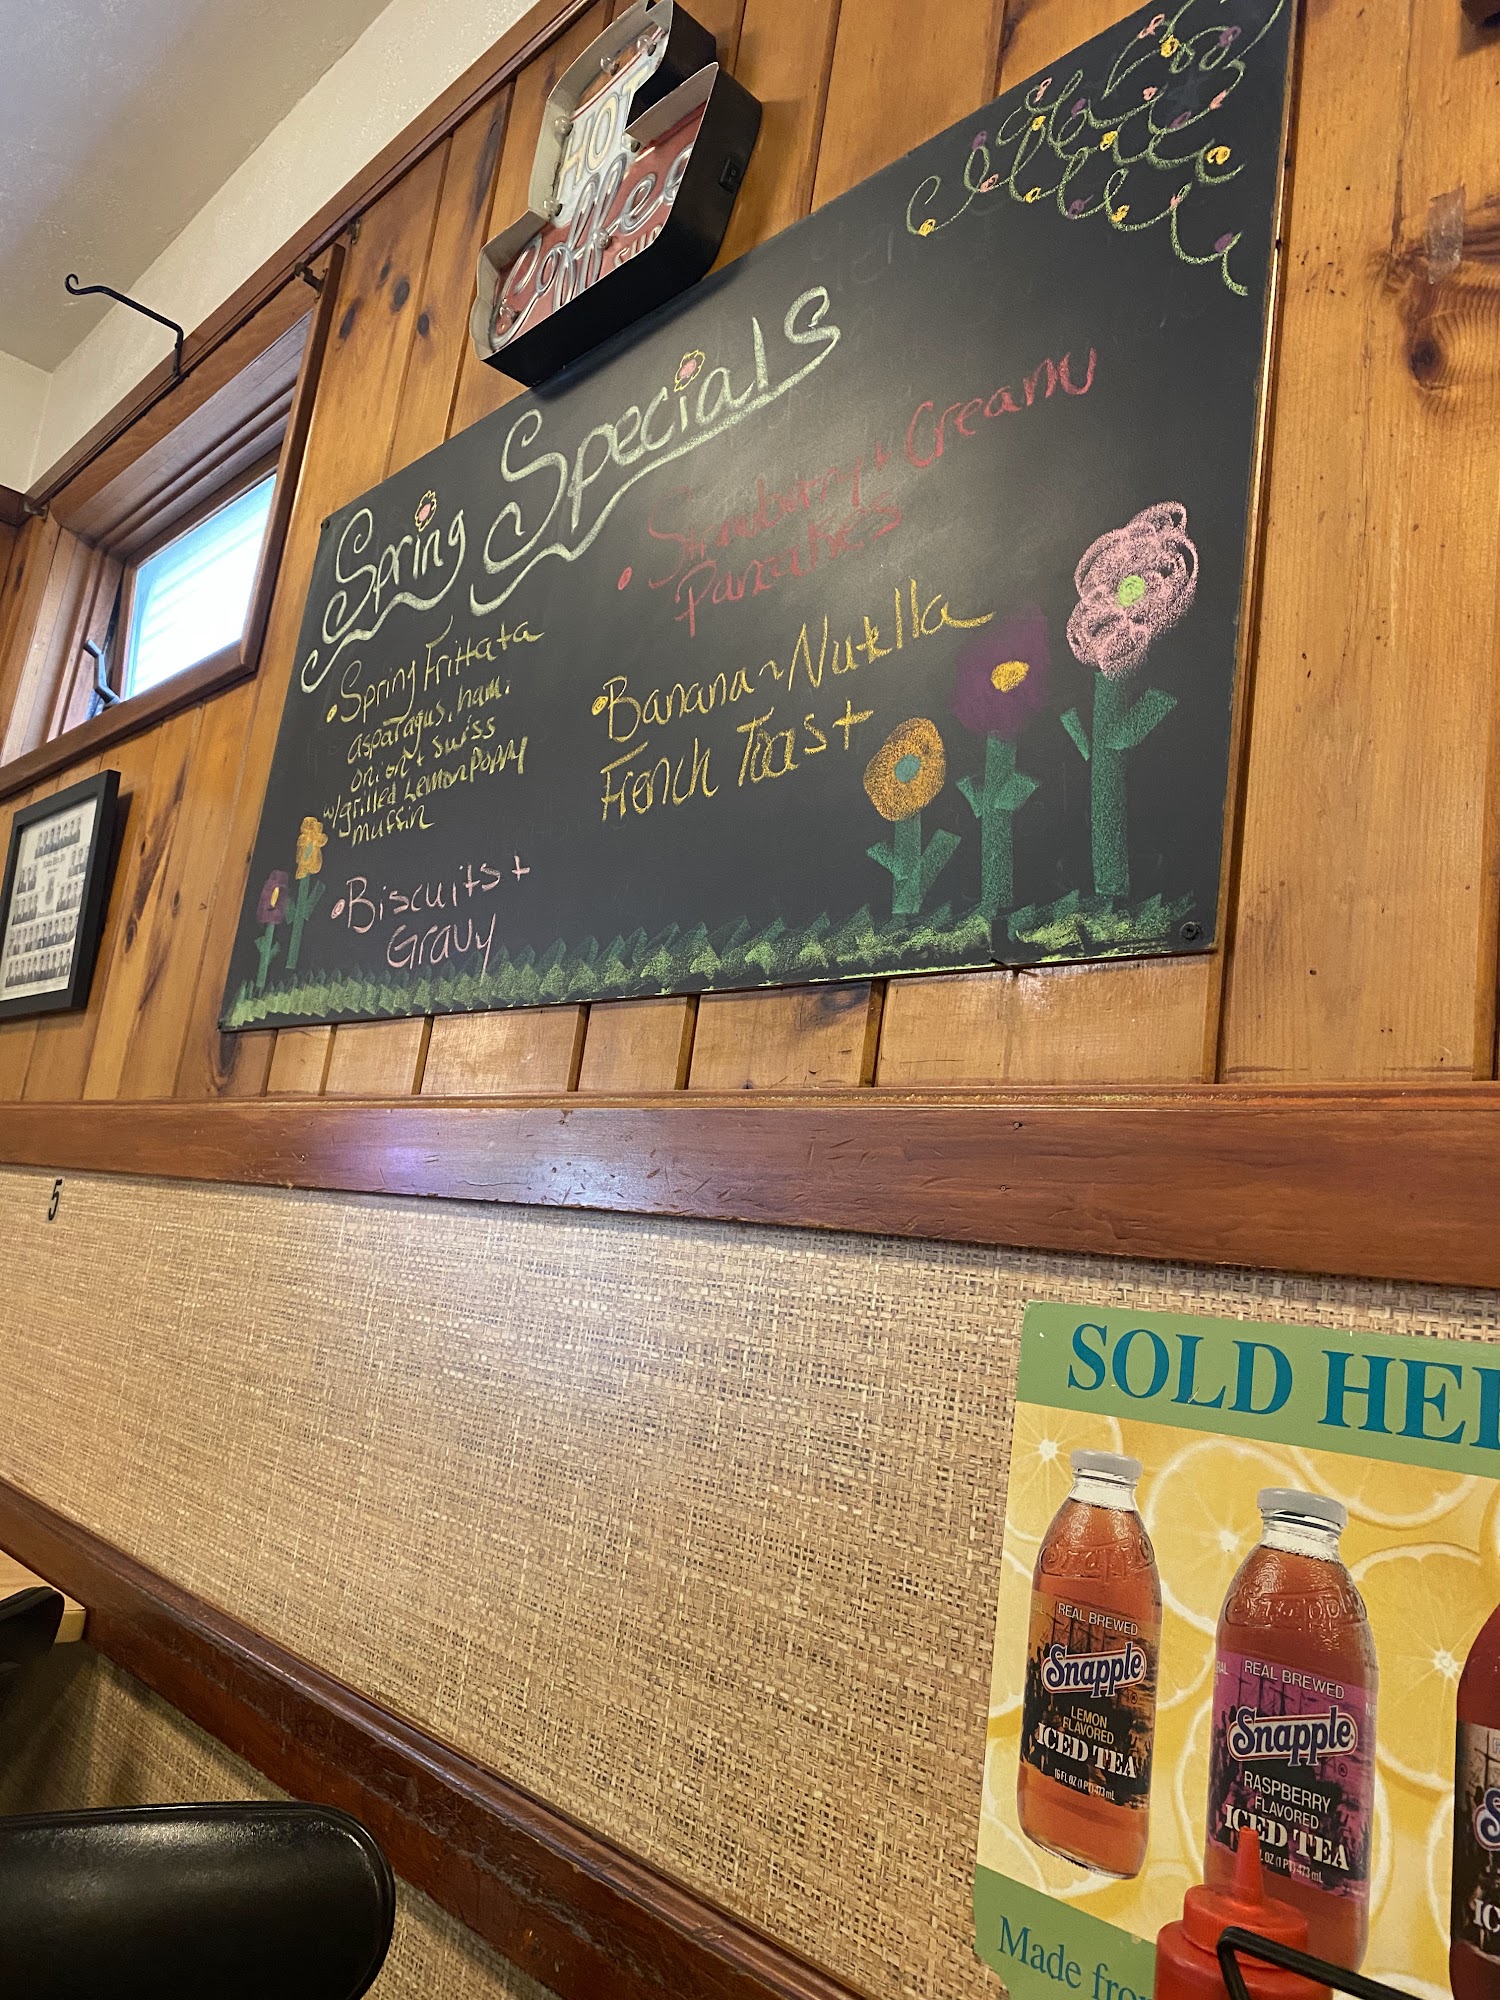 HOT
Coffee
Spring Specials
• Spring Frittata
asparagus, ham,
onion + swiss
w/grilled Lemon Poppy
muffin
• Biscuits +
Gravy
• Strawberry + Cream
Pancakes
• Banana~Nutella
French Toast
5
SOLD HE
REAL BREWED
Snapple
LEMON
FLAVORED
ICED TEA
16 FL OZ (1 PT) 473 mL
REAL BREWED
Snapple
RASPBERRY
FLAVORED
ICED TEA
OZ (1 PT) 473 mL
Made from